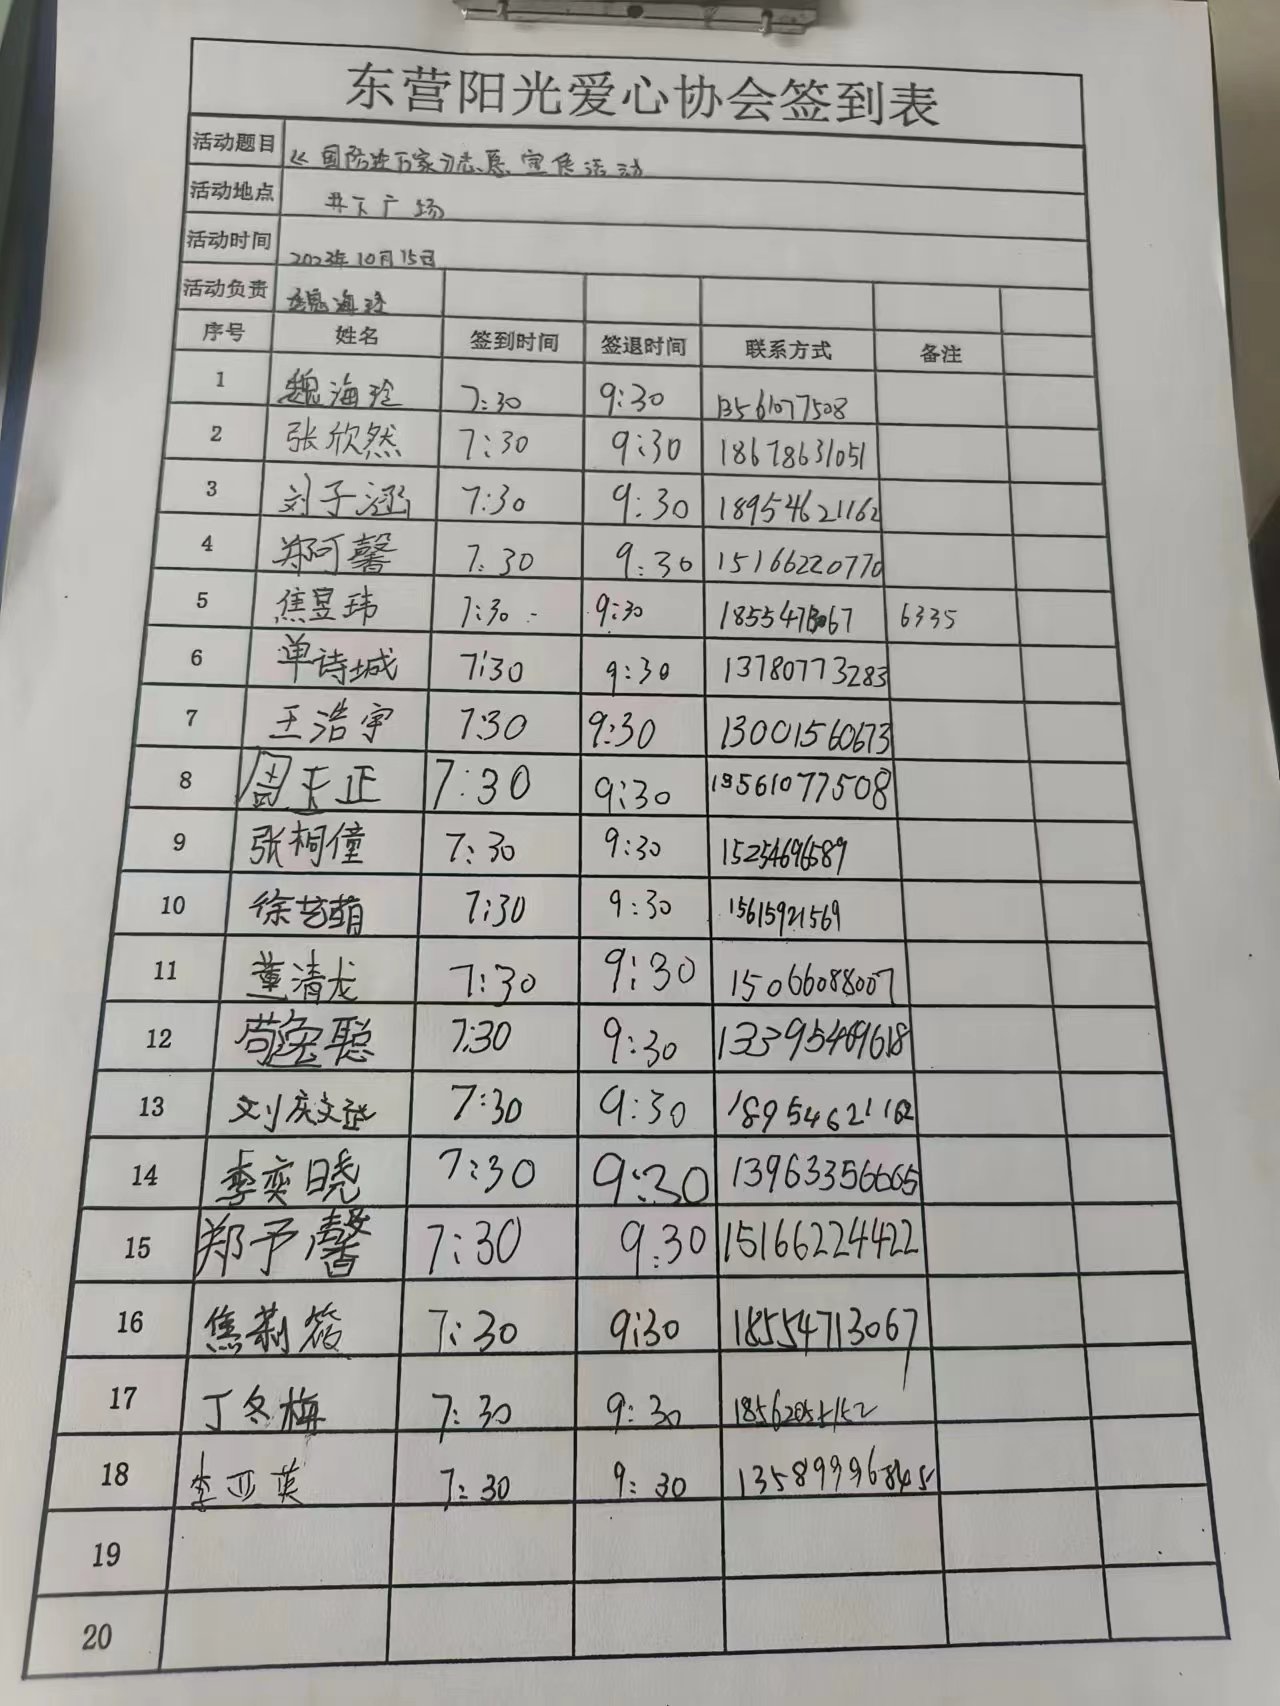 东营阳光爱心协会签到表
活动题目 《国防进万家》志愿宣传活动
活动地点 井下广场
活动时间 2023年10月15日
活动负责 魏海玲
序号 姓名 签到时间 签退时间 联系方式 备注
1 魏海玲 7:30 9:30 13561077508
2 张欣然 7:30 9:30 18678631051
3 刘子涵 7:30 9:30 18954621162
4 郑可馨 7:30 9:30 15166220770
5 焦昱玮 7:30 9:30 18554713067 6335
6 单诗城 7:30 9:30 13780773283
7 王浩宇 7:30 9:30 13001560673
8 周天正 7:30 9:30 13561077508
9 张桐僮 7:30 9:30 15254696589
10 徐艺萌 7:30 9:30 15615921569
11 董清龙 7:30 9:30 15066088007
12 7:30 9:30 13395469618
13 7:30 9:30 18954621162
14 李奕晓 7:30 9:30 13963356665
15 郑予馨 7:30 9:30 15166224422
16 7:30 9:30 18554713067
17 丁冬梅 7:30 9:30
18 李亚英 7:30 9:30 13589996845
19
20